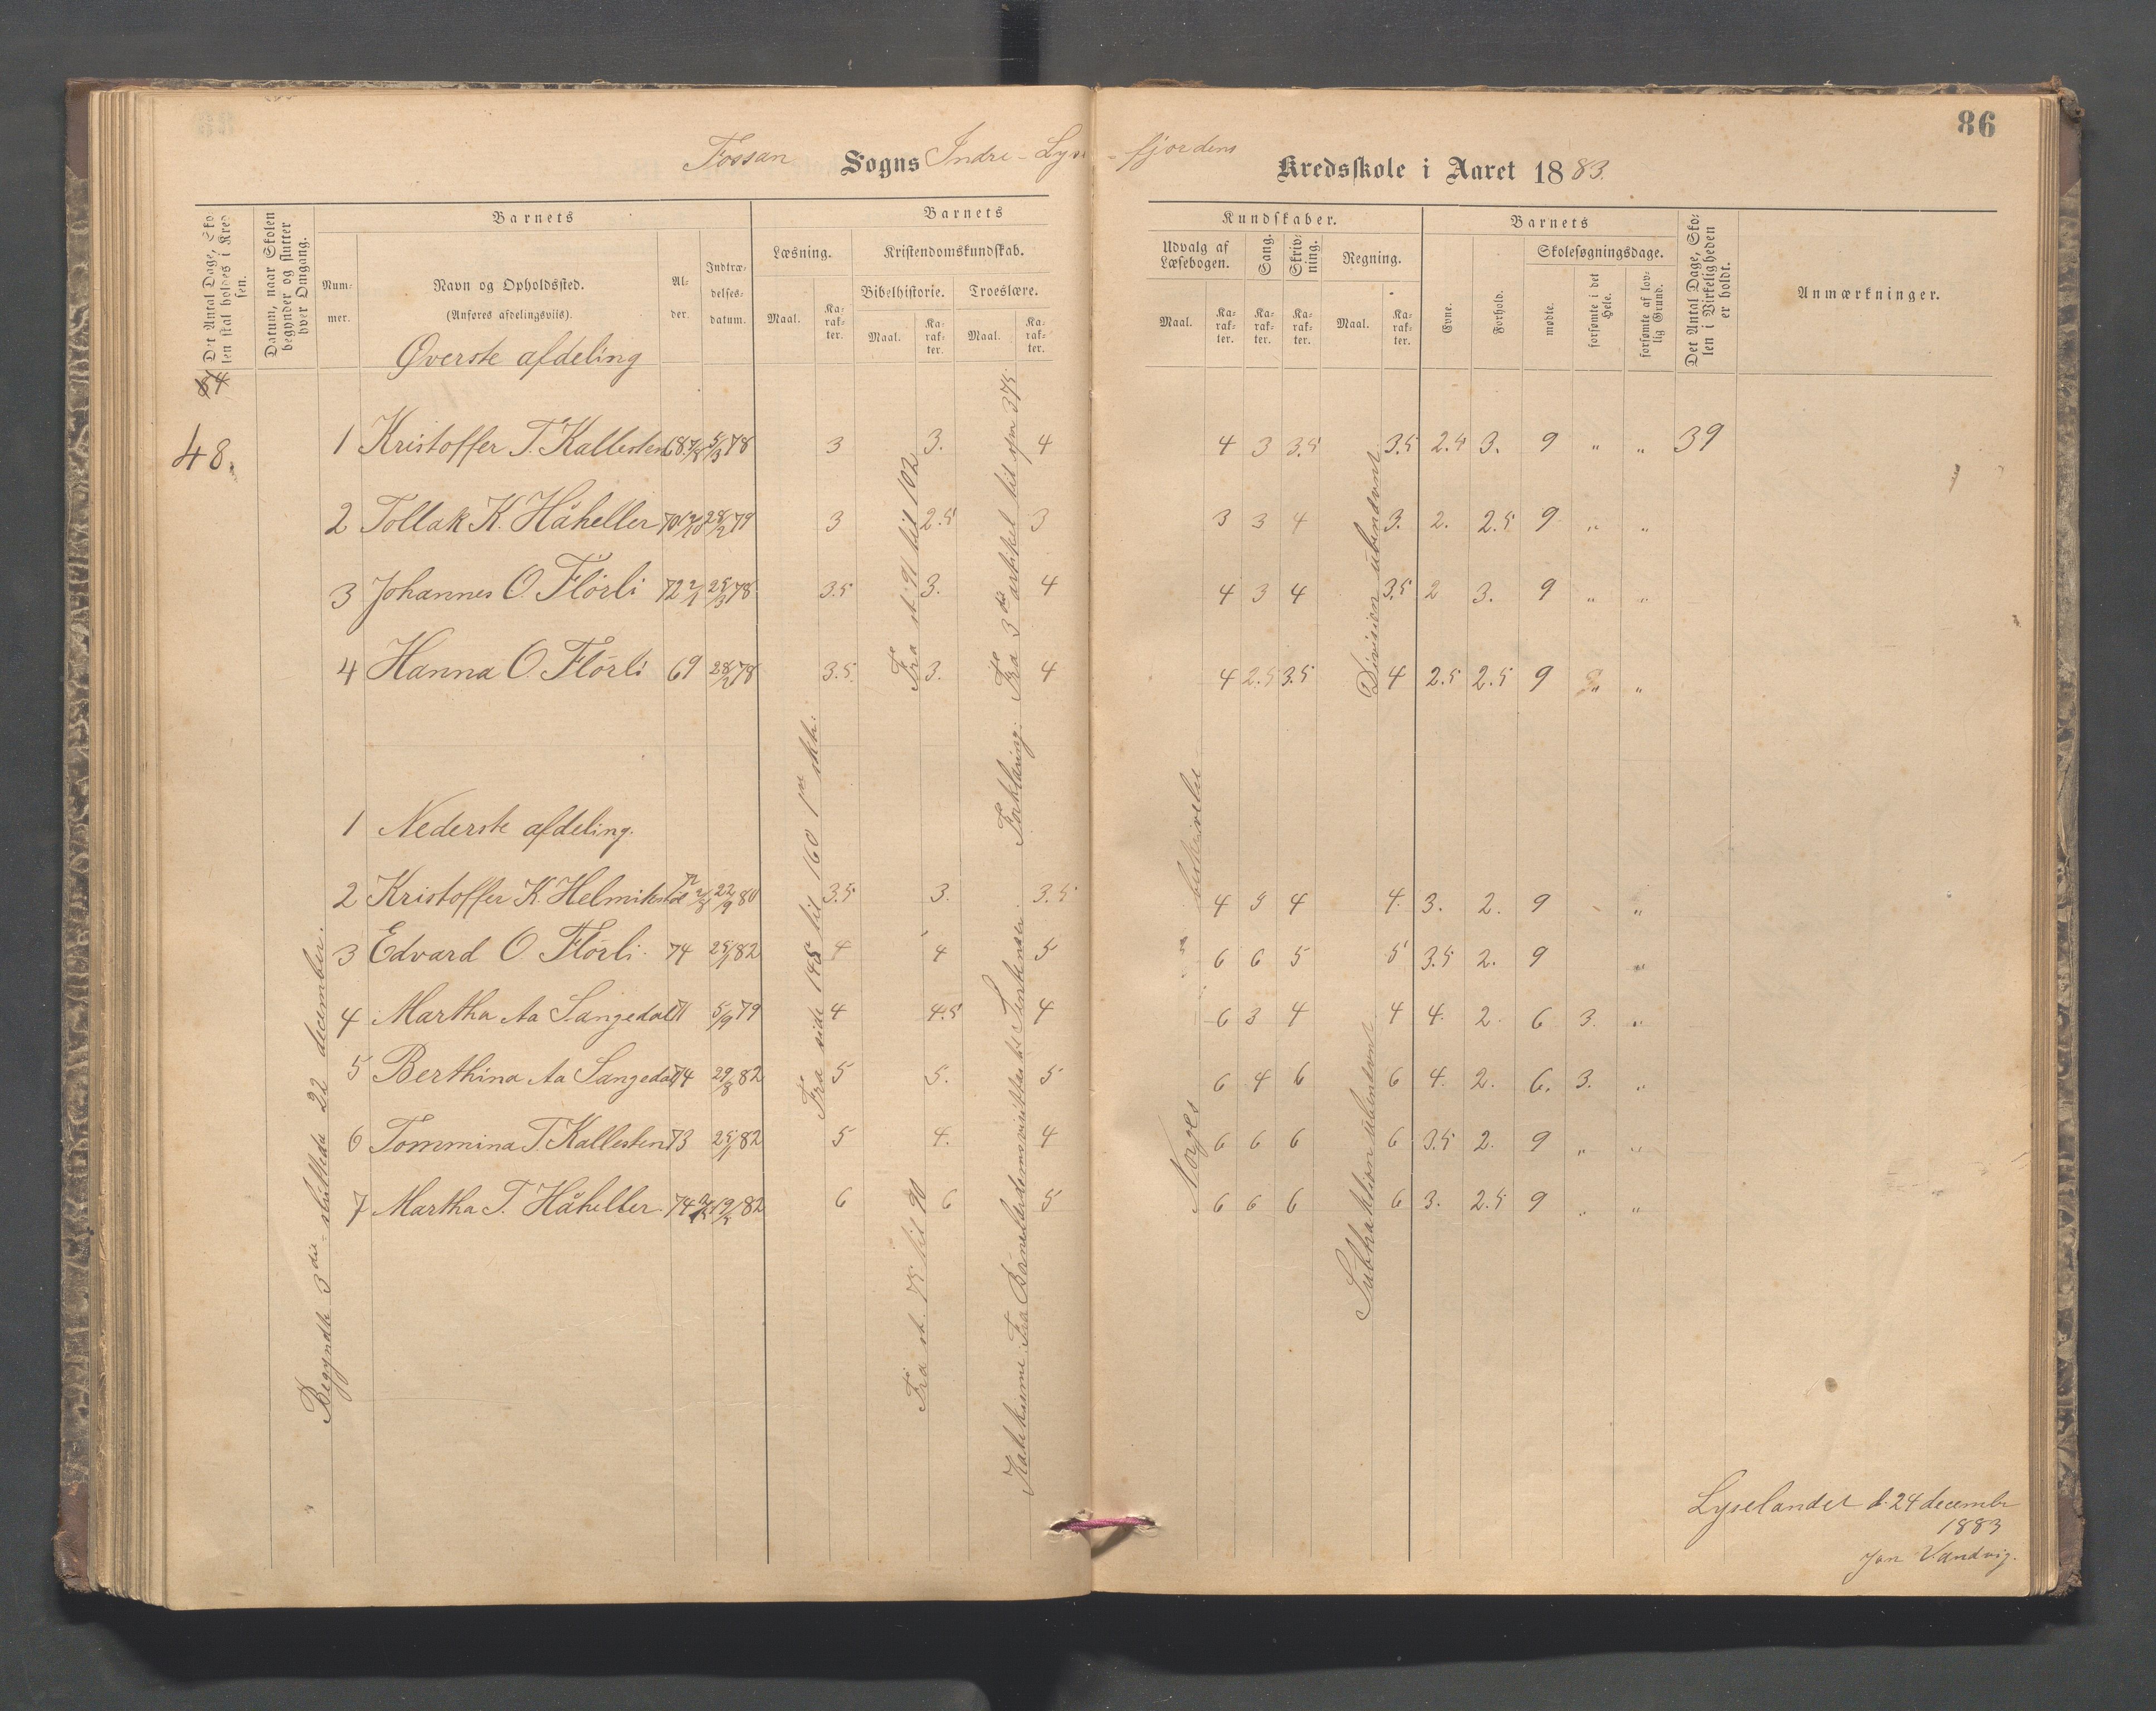 86
Fossan Sogns Indre-Lyse-fjordens Kredsskole i Aaret 1883.
Det Antal Dage, Skolen skal holdes i Kredsen.
Datum, naar Skolen begynder og slutter hver Omgang.
Barnets
Barnets
Kundskaber.
Barnets
Det Antal Dage, Skolen i Virkeligheden er holdt.
Anmærkninger.
Nummer.
Navn og Opholdssted.
(Anføres afdelingsviis).
Alder.
Indtrædelsesdatum.
Læsning.
Kristendomskundskab.
Bibelhistorie.
Troeslære.
Udvalg af Læsebogen.
Sang.
Skrivning.
Regning.
Evne.
Forhold.
Skolesøgningsdage.
mødte.
forsømte i det Hele.
forsømte af lovlig Grund.
Maal. Karakter. Maal. Karakter. Maal. Karakter. Maal. Karakter. Karakter. Karakter. Maal. Karakter.
Øverste afdeling
48.
1 Kristoffer T. Kallesten 68 5/3 78 3 3. 4 4 3 3.5 3.5 2.5 3. 9 " " 39
2 Tollak K. Håheller 70 28/2 79 3 2.5 3 3 3 4 3. 2. 2.5 9 " "
3 Johannes O. Flörli 72 25/3 78 3.5 3. 4 4 3 4 3.5 2 3. 9 " "
4 Hanna O. Flörli 69 28/2 78 3.5. 3. 4 4 2.5 3.5 4 2.5 2.5 9 " "
1 Nederste afdeling.
2 Kristoffer K. Helmikstøl 72 22/9 80 3.5 3. 3.5 4 5 4 4. 3. 2. 9 "
3 Edvard O. Flörli. 74 25/1 82 4 4 5 6 6 5 5 3.5 2. 9 "
4 Martha Aa Sangedal 71 5/9 79 4 4.5 4 6 3 4 4 4. 2. 6 3. "
5 Berthina Aa Sangedal 74 29/8 82 5 5. 5 6 4 6 6 4. 2. 6. 3. "
6 Tommina T. Kallesten 73 25/1 82 5 4. 4 6 6 6 6 3.5 2. 9 " "
7 Martha T. Håheller 74 19/2 82 6 6 5 6 6 6 6 3. 2.5 9 " "
Begyndte 3die - sluttede 22 december.
Fra side 145 til 160 1ste skr.
Fra st. 91 til 102
Fra st. 75 til 90
Forklaring: Fra 3die artikel til spm 375.
Katekisme: Fra Børnelærdomsvisitats til
Norges beskrivelse
Division ubenævnt.
Subtraktion ubenævnt
Lyselandet d. 24 decembr
1883
Jon Vandvig.